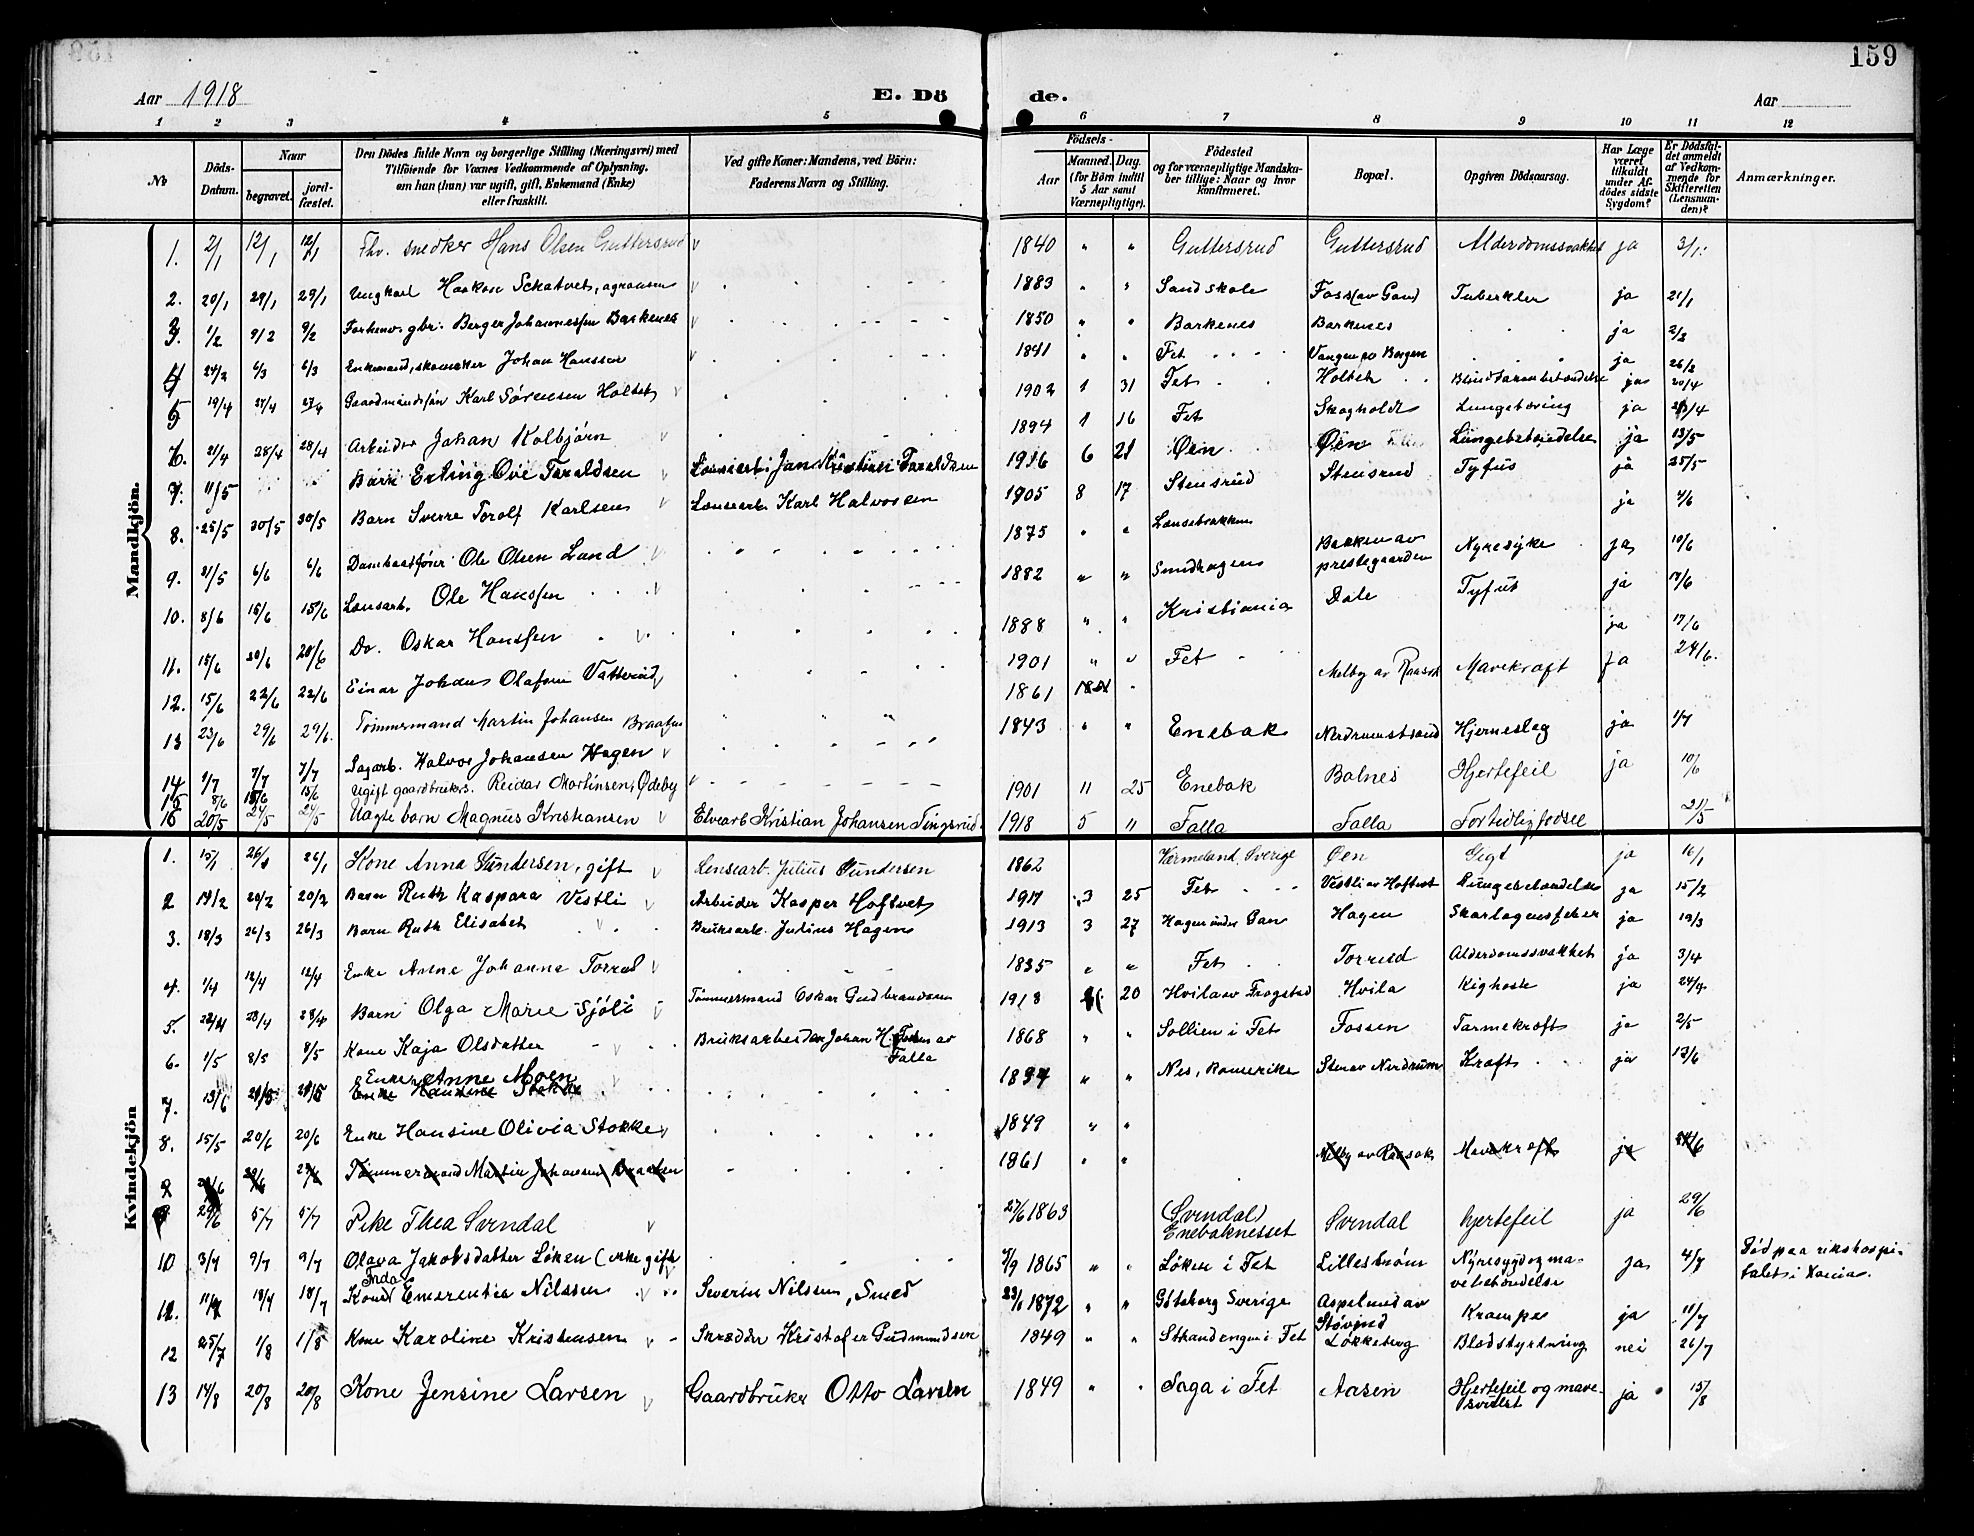 159
Aar 1918 E. Dö de. Aar
1 2 3 4 5 6 7 8 9 10 11 12
No
Döds-Datum.
Naar
begravet.
jord-fæstet.
Den Dödes fulde Navn og borgerlige Stilling (Næringsvei) med
Tilföiende for Voxnes Vedkommende af Oplysning,
om han (hun) var ugift, gift, Enkemand (Enke)
eller fraskilt.
Ved gifte Koner: Mandens, ved Börn:
Faderens Navn og Stilling.
Födsels-
Aar
Maaned. Dag.
(for Börn indtil
5 Aar samt
Værnepligtige).
Födested
og for værnepligtige Mandska-
ber tillige: Naar og hvor
konfirmeret.
Bopæl.
Opgiven Dödsaarsag.
Har Læge
været
tilkaldt
under Af-
dödes sidste
Sygdom?
Er Dödsfal-
det anmeldt
af Vedkom-
mende for
Skifteretten
(Lensman-
den)?
Anmærkninger.
Mandkjön.
1. 2/1 12/1 12/1 Fhv. snedker Hans Olsen Guttersrud 1840 " " Guttersrud Guttersrud Alderdomssvakhet ja 3/1
2. 20/1 29/1 29/1 Ungkarl Haakon Schatvet, agronom 1883 " " Sandskole Foss (av Gan) Tuberkler ja 21/1
3. 1/2 9/2 9/2 Forhenv. gbr. Berger Johannessen Barkenes 1850 " " Barkenes Barkenes ja 2/2
4 24/2 6/3 6/3 Enkemand, skomaker Johan Hanssen 1841 " " Fet Vangen av Borgen ja 26/2
5 19/4 27/4 27/4 Gaardmandssøn Karl Sørensen Holtet 1902 1 31 Fet Holtet Blindtarmbetændelse ja 20/4
6. 21/4 28/4 28/4 Arbeider Johan Kolbjørn 1894 1 16 Fet Skogholdt Lungetæring ja
7. 11/5 Barn Erling Ove Taraldsen Lænsearb. Jan Kristian Taraldsen 1916 6 21 Øen Øen Lungebetændelse ja 13/5
8. 25/5 30/5 30/5 Barn Sverre Torolf Karlsen Lænsearb. Karl Halvorsen 1905 8 17 Stensrud Stensrud Tyfus ja 25/5
9. 31/5 6/6 6/6 Dambaatfører Ole Olsen Lund 1875 " " Lænsebrakken Bakken av prestegaarden Nyresyke ja 10/6
10. 8/6 15/6 15/6 Lænsarb. Ole Hanssen 1882 " " Smedhagen Dale Tyfus ja
11. 15/6 20/6 20/6 Do. Oskar Hanssen 1888 " " Kristiania ja 17/6
12. 15/6 22/6 22/6 Einar Johan Olafsen Vatterud 1901 " " Fet
13 23/6 29/6 29/6 Tømmermand Martin Johansen Braaten 1861 Melby av Raasok Mavekræft ja 24/6
14 1/7 7/7 7/7 Sagarb. Halvor Johansen Hagen 1843 " " Enebak Nerdrumstrand Hjerneslag ja 1/7
15 8/6 15/6 15/6 Ugift gaardbrukers. Reidar Martinsen, Ødeby 1901 11 25 Enebak Balnes Hjertefeil ja 10/6
16 20/5 24/5 24/5 Uægte barn Magnus Kristiansen Elvearb Kristian Johansen Tingsrud 1918 5 " Falla Falla Fortidlig fødsel 21/5
Kvindekjön
1. 15/1 26/1 26/1 Kone Anna Gundersen, gift Lensearb. Julius Gundersen 1862 Værmeland, Sverige Øen Gigt ja 16/1
2 14/2 20/2 20/2 Barn Ruth Kaspara Vestli Arbeider Kasper Hoftvet 1917 3 25 Fet Vestli av Hoftvet Lungebetændelse ja 15/2
3. 18/3 26/3 26/3 Barn Ruth Elisabet Bruksarb. Julius Hagen 1913 3 27 Hagen under Gan Hagen Skarlagensfeber ja 19/3
4. 1/4 12/4 12/4 Enke Anne Johanne Torrud 1835 " " Fet Torrud Alderdomssvakhet ja 3/4
5. 28/4 28/4 Barn Olga Marie Sjöli Tömmermand Oskar Gudbrandsen 1918 20 Hvila av Frogstad Hvila Kighoste ja 24/4
6. 1/5 8/5 8/5 Kone Kaja Olsdatter Bruksarbeider Johan H. av Falla 1868 " " Sollien i Fet Fossen Tarmekræft ja 2/5
7. 13/6 Enke Anne Moen 1834 " " Nes, Romerike Sten av Nerdrum Kræft ja 13/6
Enke Hansine Stokke
8. 15/5 20/6 20/6 Enke Hansine Olivia Stokke 1849 " "
9 Tømmermand Martin Johansen Braaten 1861 " " Melby av Raasok Mavekræft ja 24/6
5/7 5/7 Pike Thea Svendal 27/6 1863 (Svendal) Enebaknesset Svendal hjertefeil ja 29/6
10 3/7 9/7 9/7 Olava Jakobsdatter Løken (ikke gift 7/9 1865 " " Løken i Fet Lillestrøm Nyresyg og mavebetændelse ja 4/7 Död paa rikshospitalet i Kania.
11. 11/7 18/7 18/7 Kone Inda Emerentia Nilssen Severin Nilssen, Smed 1872 " " Göteborg Sverige Aspelund av Støvind Krampe ja 11/7
12 25/7 1/8 1/8 Kone Karoline Kristensen Skrædder Kristofer Gudmundsen 1849 " " Strandengen i Fet Løkkeberg Blodstyrtning nei 26/7
13 14/8 20/8 20/8 Kone Jensine Larsen Gaardbruker Otto Larsen 1849 " " Saga i Fet Aasen Hjertefeil og mavesvulst ja 15/8